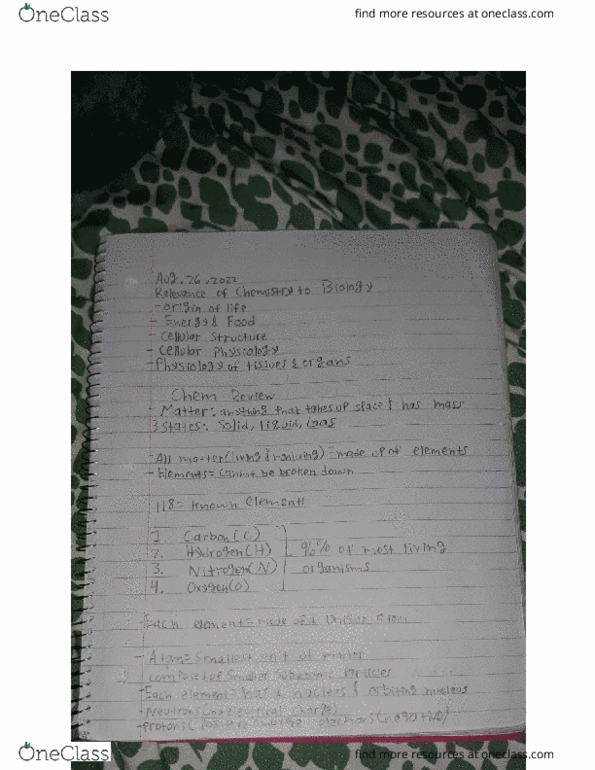 OneClass
find more resources at oneclass.com
Aug. 26, 2022
Relevance of Chemistry to Biology
- origin of life
- Energy & Food
- Cellular Structure
- Cellular Physiology
- Physiology of tissues & organs
Chem Review
- Matter: anything that takes up space & has mass
3 States: Solid, liquid, gas
- All matter (living & nonliving) = made up of elements
- Elements = cannot be broken down
118 = known elements
1. Carbon (C)
2. Hydrogen (H)
3. Nitrogen (N)
4. Oxygen (O)
96% of most living
organisms
- Each element = made of a unique
- Atom = Smallest unit of matter
composed of smaller subatomic particles
- Each element = has a nucleus & orbiting nucleus
- Neutrons (no electrical charge)
- protons (Positive charge electrons
OneClass
find more resources at oneclass.com